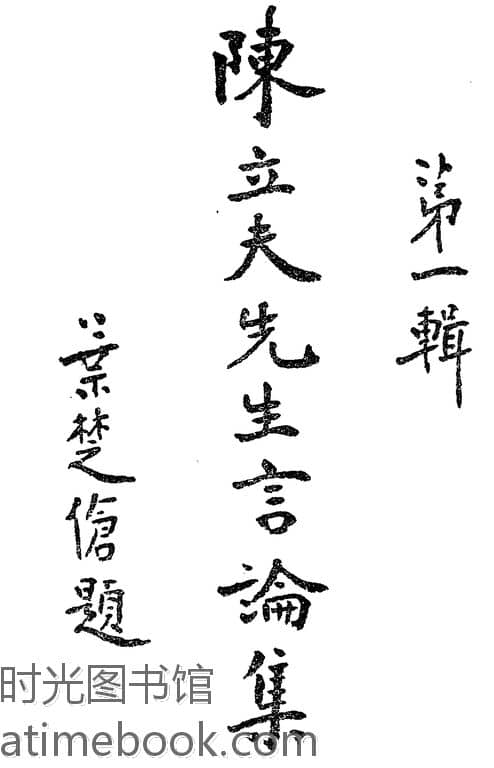 第一輯
陳立夫先生言論集
葉楚傖題
时光图书馆
atimebook.com